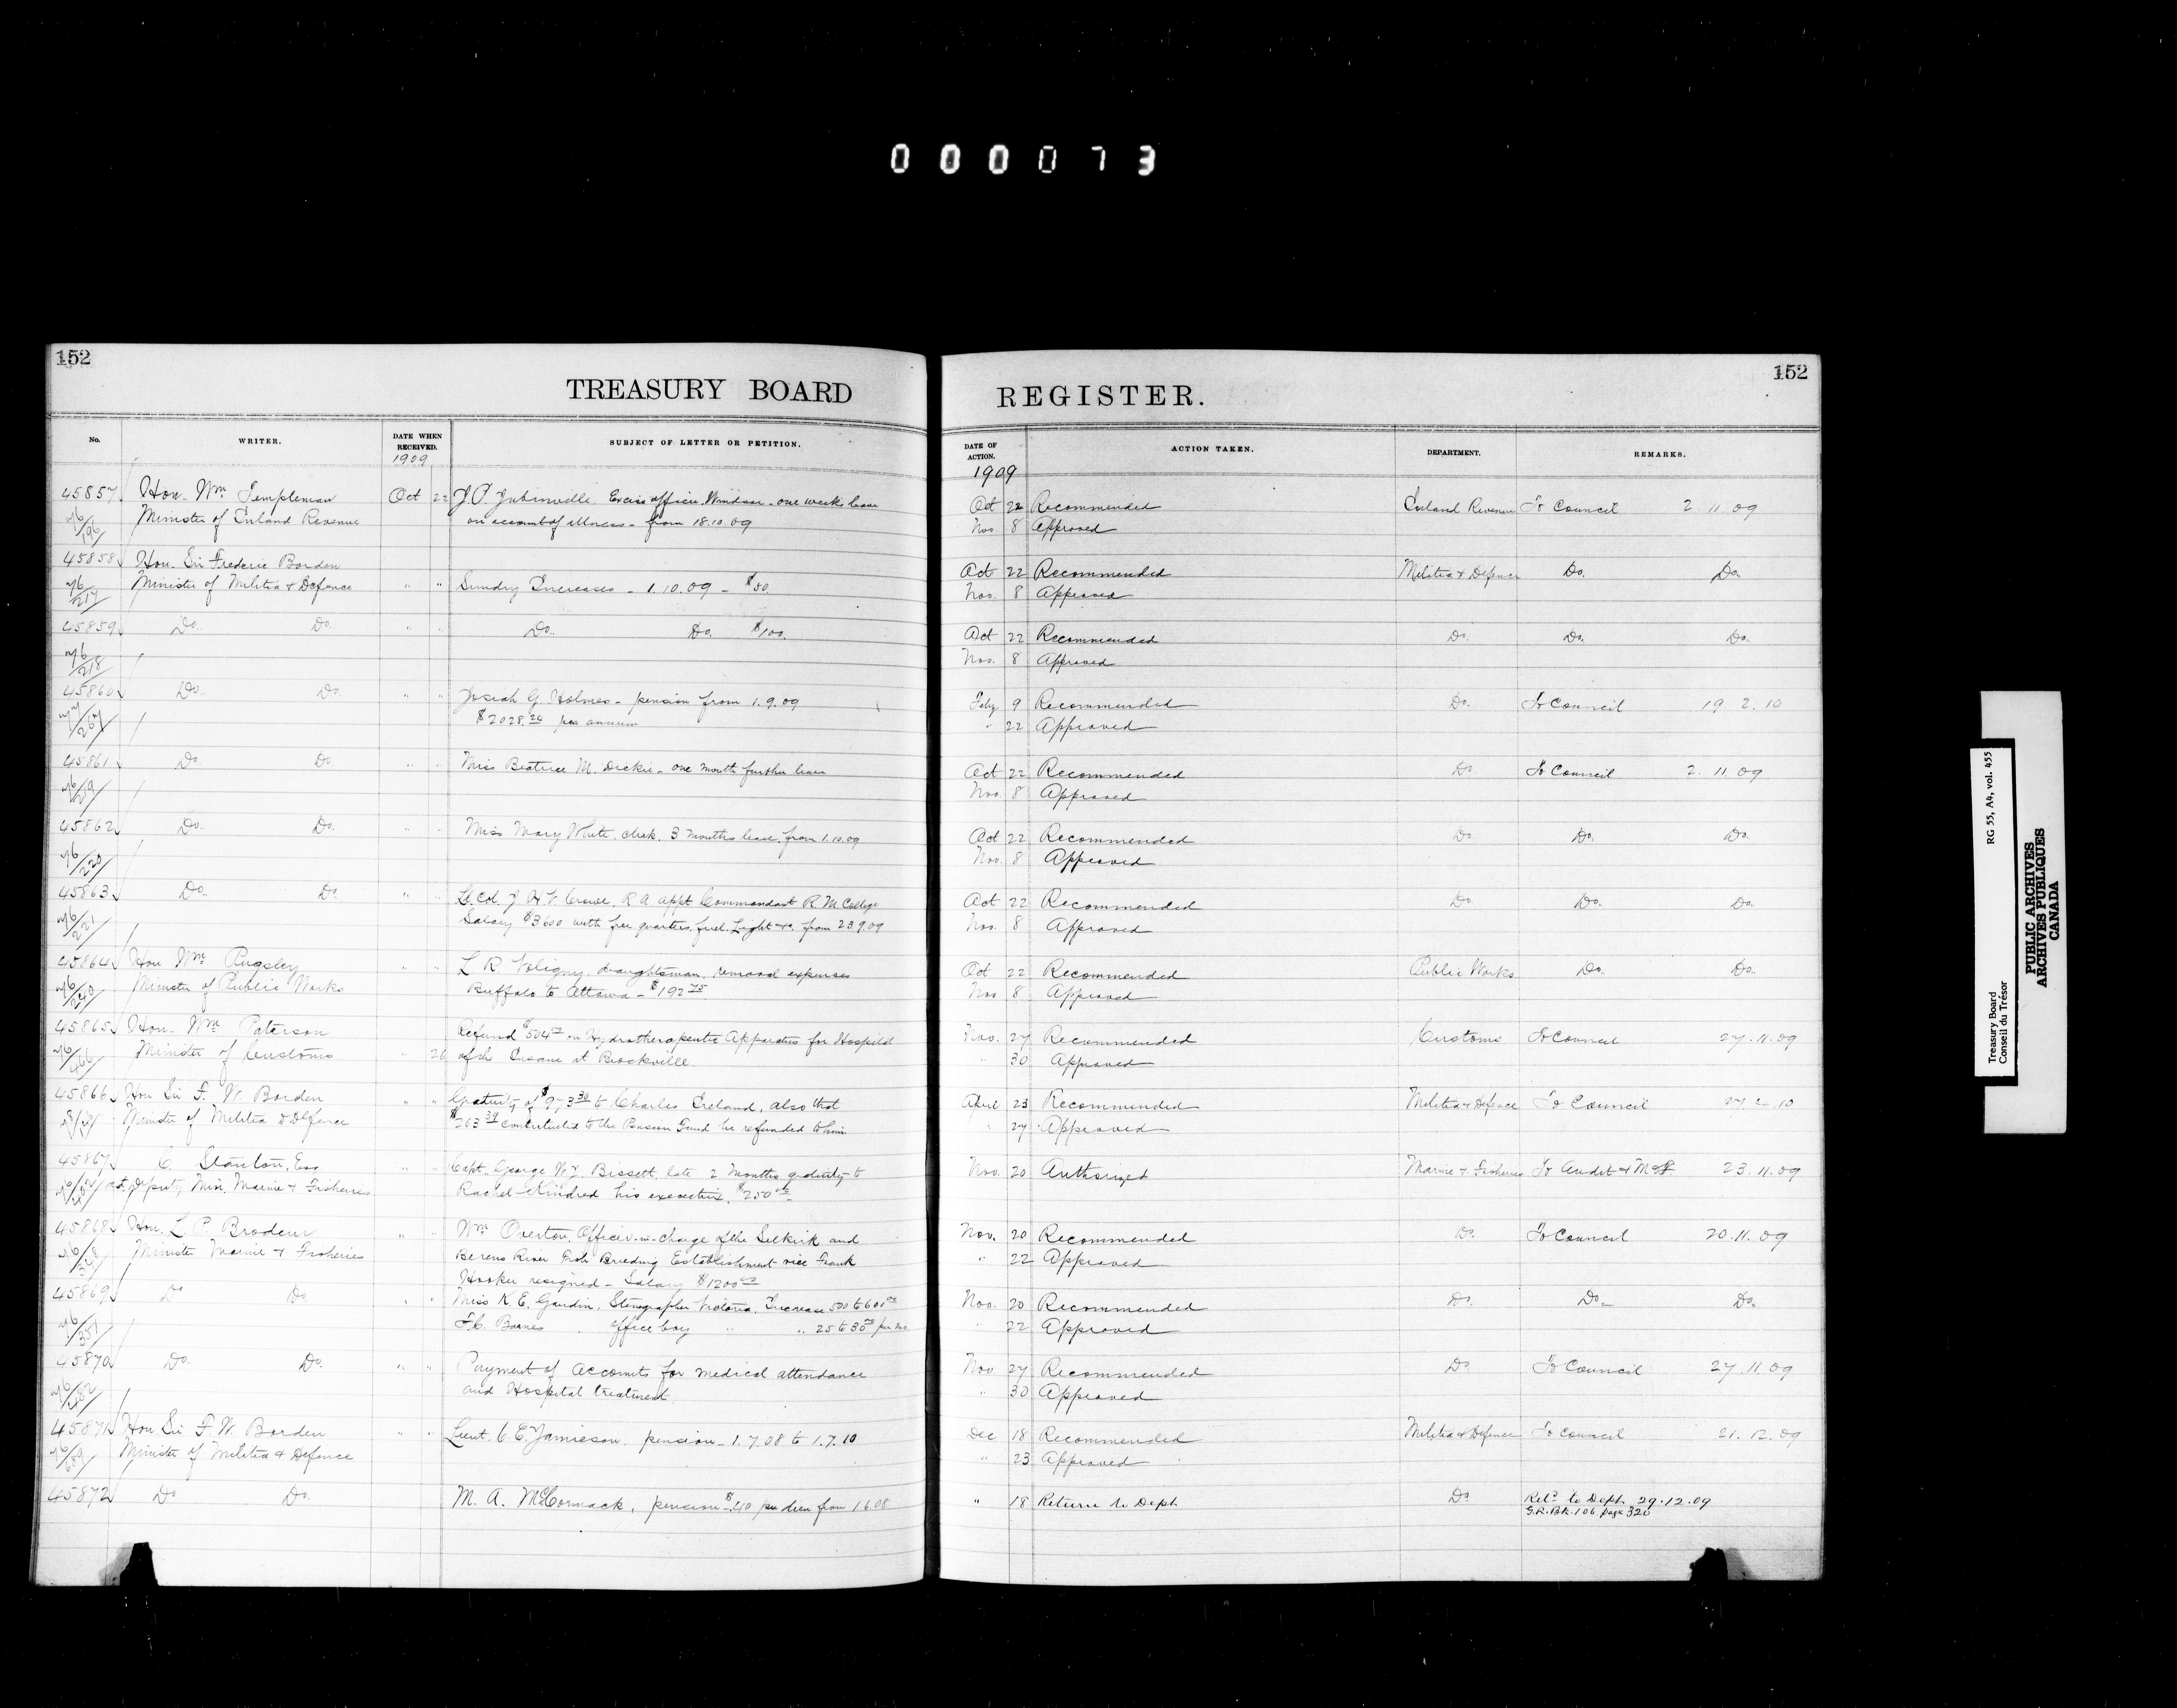 000073
152
TREASURY BOARD
No.
WRITER.
DATE WHEN RECEIVED.
SUBJECT OF LETTER OR PETITION.
1909
45857 Hon. Wm Templeman Oct 22 J. P. Jubinville Excise officer, Windsor - one weeks leave
76/196 Minister of Inland Revenue on account of illness - from 18.10.09
45858 Hon. Sir Frederic Borden
76/217 Minister of Militia & Defence " " Sundry Increases - 1.10.09 - $50.
45859 Do. Do. " " Do. Do. $100.
76/218
45860 Do. Do. " " Josiah G. Holmes - pension from 1.9.09
77/267 $2028.24 per annum
45861 Do. Do. " " Miss Beatrice M. Dickie - one month further leave
76/219
45862 Do. Do. " " Miss Mary White, clerk, 3 months leave from 1.10.09
76/220
45863 Do. Do. " " Lt. Col. J. H. V. Crowe, R A appt Commandant R. M. College
76/221 Salary $3600 with free quarters, fuel, Light &c. from 23.9.09
45864 Hon Wm Pugsley " " L. R. Voligny, draughtsman, removal expenses
76/240 Minister of Public Works Buffalo to Ottawa - $192.75
45865 Hon. Wm Paterson Refund $504 on Hydrotherapeutic Apparatus for Hospital
76/466 Minister of Customs " 26 of the Insane at Brockville.
45866 Hon Sir F. W. Borden " " Gratuity of $973.30 to Charles Ireland, also that
Minister of Militia & Defence $263.39 contributed to the Pension Fund be refunded to him
45867 C. Stanton, Esq " " Capt. George W. Bissett, late 2 months gratuity to
act. Deputy Min. Marine & Fisheries Rachel Kindred his executrix, $250
45868 Hon. L. P. Brodeur " " Wm Overton, Officer-in-charge of the Selkirk and
Minister Marine & Fisheries Berens River Fish Breeding Establishment vice Frank
Hooker resigned - Salary $1200
45869 Do Do " " Miss K. E. Gaudin, Stenographer Victoria, Increase 500 to 600
76/351 F. C. Barnes, office boy " " 25 to 30 per mo.
45870 Do. Do. " " Payment of Accounts for medical attendance
76/482 and Hospital treatment.
45871 Hon. Sir F. W. Borden " " Lieut. C. E. Jamieson, pension - 1.7.08 to 1.7.10
76/689 Minister of Militia & Defence
45872 Do Do. M. A. McCormack, pension - $.40 per diem from 1.6.08
152
REGISTER.
DATE OF ACTION.
ACTION TAKEN.
DEPARTMENT.
REMARKS.
1909
Oct 22 Recommended Inland Revenue To Council 2.11.09
Nov. 8 Approved
Oct 22 Recommended Militia & Defence Do. Do.
Nov. 8 Approved
Oct 22 Recommended Do. Do. Do.
Nov. 8 Approved
Feby 9 Recommended Do. To Council 19 2.10
" 22 Approved
Oct 22 Recommended Do. To Council 2.11.09
Nov. 8 Approved
Oct 22 Recommended Do Do. Do.
Nov. 8 Approved
Oct 22 Recommended Do. Do. Do.
Nov. 8 Approved
Oct 22 Recommended Public Works Do. Do.
Nov 8 Approved
Nov. 27 Recommended Customs To Council 27.11.09
" 30 Approved
April 23 Recommended Militia & Defence To Council 27 4.10
" 27 Approved
Nov. 20 Authorized Marine & Fisheries To Audit & M & F 23.11.09
Nov. 20 Recommended Do. To Council 20.11.09
" 22 Approved
Nov. 20 Recommended Do. Do. Do.
" 22 Approved
Nov 27 Recommended Do To Council 27.11.09
" 30 Approved
Dec 18 Recommended Militia & Defence To Council 21.12.09
" 23 Approved
" 18 Return to Dept. Do. Retd to Dept. 29.12.09
G.R.Bk.106 page 320
Treasury Board RG 55, A4, vol. 455
Conseil du Trésor
PUBLIC ARCHIVES
ARCHIVES PUBLIQUES
CANADA